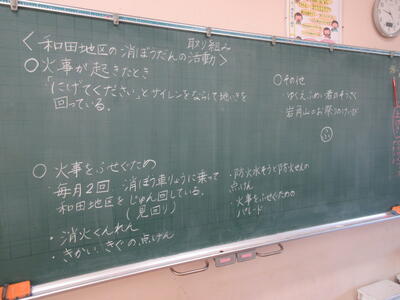 取り組み
<和田地区の消ぼうだんの活動>
○火事が起きたとき
「にげてください」とサイレンをならして地いきを
回っている。
○火事をふせぐため
・毎月2回 消ぼう車りょうに乗って
和田地区をじゅん回している。
(見回り)
・消火くんれん
・きかい、きぐの点けん
・防火水そうと防火せんの
点けん
・火事をふせぐための
パレード
○その他
ゆくえふめい者のそうさく
岩月山のお祭りのけいび
ふ